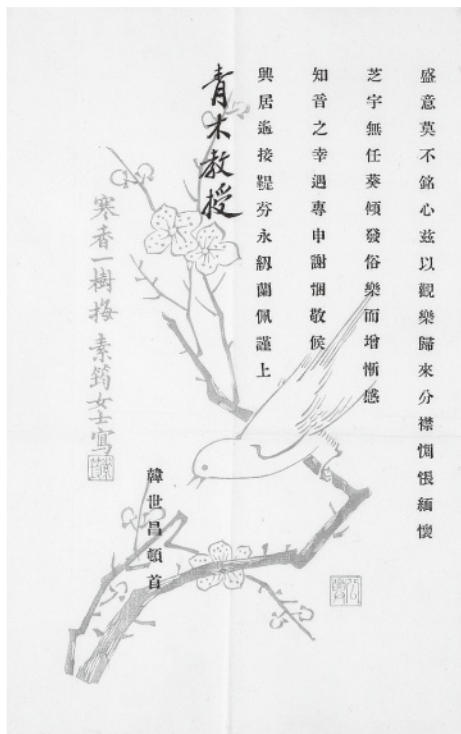 盛意莫不銘心茲以觀樂歸來分襟惆悵緬懷
芝宇無任葵傾發俗樂而增慚感
知音之幸遇專申謝悃敬候
興居遙接鞮芬永紉蘭佩謹上
青木教授
韓世昌頓首
寒香一樹梅 素筠女士寫